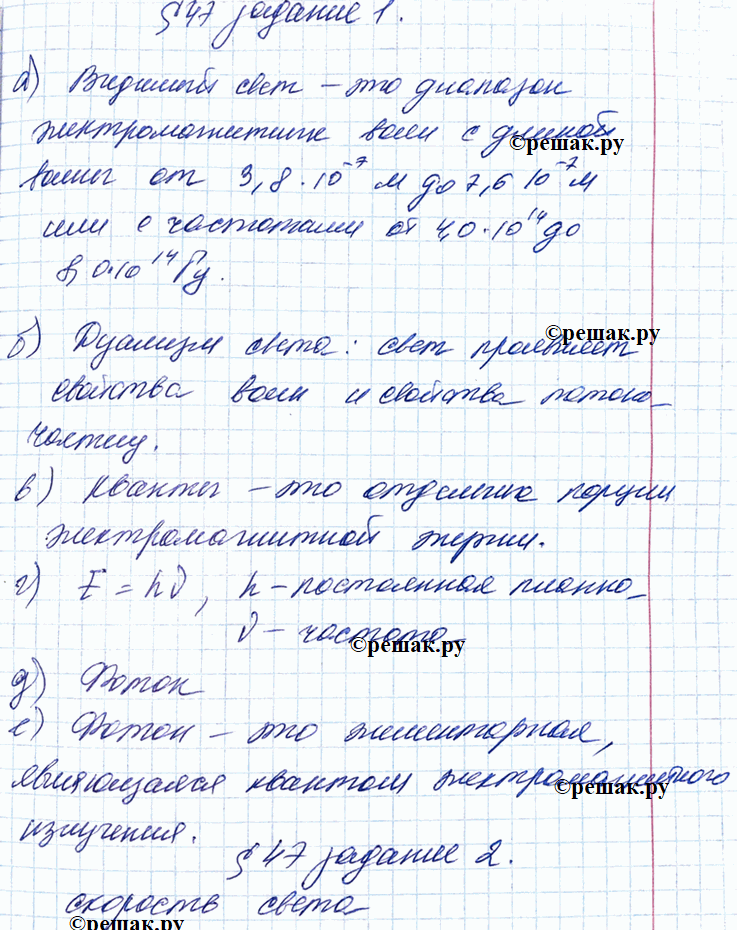 § 47 задание 1.
а) Видимый свет – это диапазон
электромагнитных волн с длиной
©решак.ру
волны от 3,8 · 10⁻⁷ м до 7,6 10⁻⁷ м
или с частотами от 4,0 · 10¹⁴ до
8,0·10¹⁴ Гц.
©решак.ру
б) Дуализм света: свет проявляет
свойства волн и свойства потока
частиц.
в) Кванты – это отдельные порции
электромагнитной энергии.
г) E = hν, h – постоянная планка
ν – частота
©решак.ру
д) Фотон
е) Фотон – это элементарная,
являющаяся квантом электромагнитного
©решак.ру
излучения.
§ 47 задание 2.
скорость света
©решак.ру